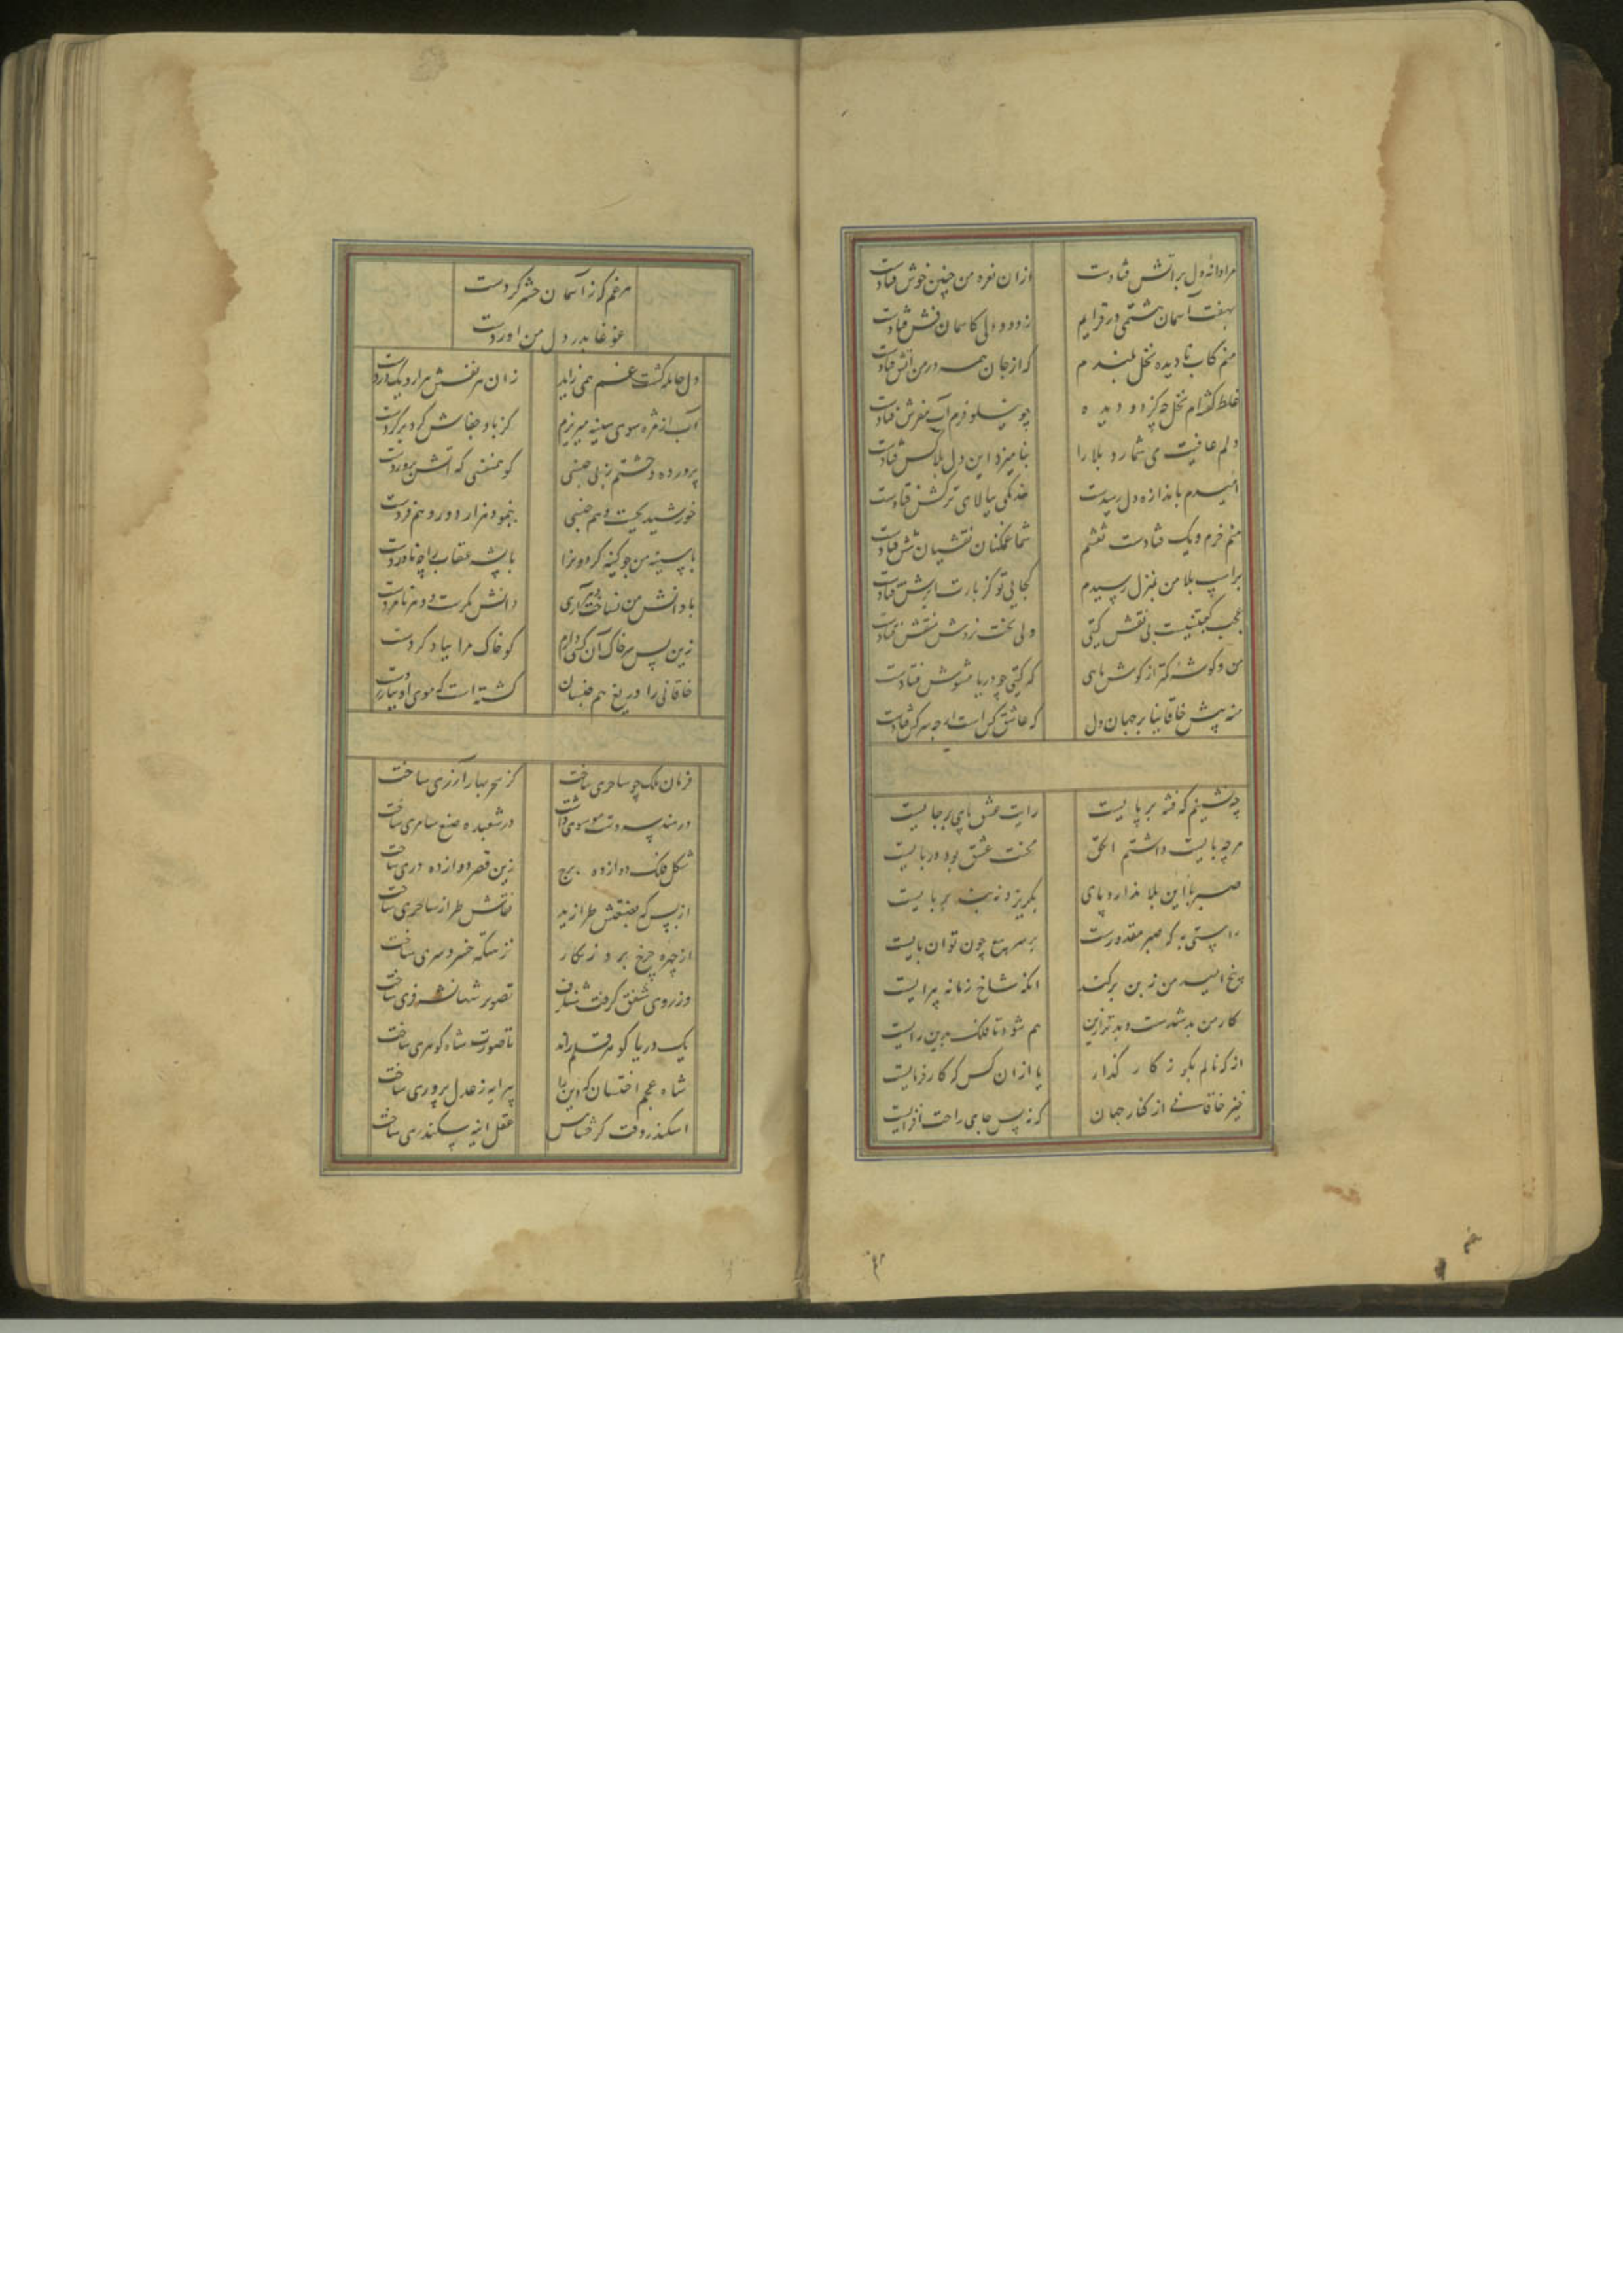 مرا دانهٔ دل بر آتش فتادست
از آن نعره من چنین خوش فتادست
بهفت آسمان هشتمی در فزایم
ز دود دلی کاسمان فش فتادست
منم کاب نادیده نخل بلندم
که از جان همه در من آتش فتادست
غلط گفته‌ام نخل چه کز دو دیده
چو نیلوفرم آب مفرش فتادست
دلم عافیت می شمارد بلا را
بنامیزد این دل بلاکش فتادست
امیدم باندازه دل رسیدست
خدنگی ببالای ترکش فتادست
منم خرم و یک فتادست نقشم
شما غمکنان نقشتان شش فتادست
براسب بلا من بمنزل رسیدم
کجایی تو کز بارت ابرش فتادست
عجب کعبتینیست بی نقش گیتی
ولی تخت نردش منقش فتادست
من و گوشهٔ کمتر از گوش ماهی
که گیتی چو دریا مشوش فتادست
منه پیش خاقانیا بر جهان دل
که عاشق کش است ارچه سرکش فتادست
چه نشینم که فتنه بر پایست
رایت عشق پای بر جایست
هرچه بایست داشتم الحق
محنت عشق بود در بایست
صبر با این بلا ندارد پای
بگریزد نه بند بر پایست
راستی به که صبر معذورست
بر سر تیغ چون توان پایست
بیخ امید من ز بن برکند
انکه شاخ زمانه پیرایست
کار من بد شدست و بدتر ازین
هم شود تا فلک بدین رایست
از که نالم بگو ز کار گذار
یا از آن کس که کار فرمایست
خیز خاقانی از کنار جهان
که نه بس جای راحت افزایست
هر غم که ز آسمان حشر کردست
غوغا بدر دل من اوردست
دل حامله گشت غم همی زاید
زان هر نفسش هزار ویک دردست
آب از مژه سوی سینه میریزم
کز باد جفاش گرد بر گردست
پرورده وحشتم زبی جنسی
کو همنفسی که آتش پروردست
خورشید نخست و هم جنسی
بنمود هزار دور و هم فردست
با سینه من چو کینه کردو نرا
با پشه عقاب را چه ناوردست
با دانش من نساخت آری
دانش بکرست و دهر نامردست
زین پس سر خاک آن کسی دارم
کو خاک مرا بباد کردست
خاقانی را دریغ هم جنسان
کشته است که موی او بیازردست
فرمان ملک چو ساحری ساخت
کز سحر بهار آزری ساخت
در هندسه دست موسوی داشت
در شعبده صنع سامری ساخت
شکل فلک دوازده برج
زین قصر دوازده دری ساخت
از بس که بصنعتش طرازید
نقاش طراز ساحری ساخت
از چهره چرخ برد زنگار
زر سکه خسرو سری ساخت
وز روی شفق گرفت شنگرف
تصویر شهان ساخت
یک دریا گوهر قلم راند
تا صورت شاه گوهری ساخت
شاه عجم اخستان که دین را
پیرایه ز عدل پروری ساخت
اسکندر وقت کز شناسش
عقل اینه سکندری ساخت